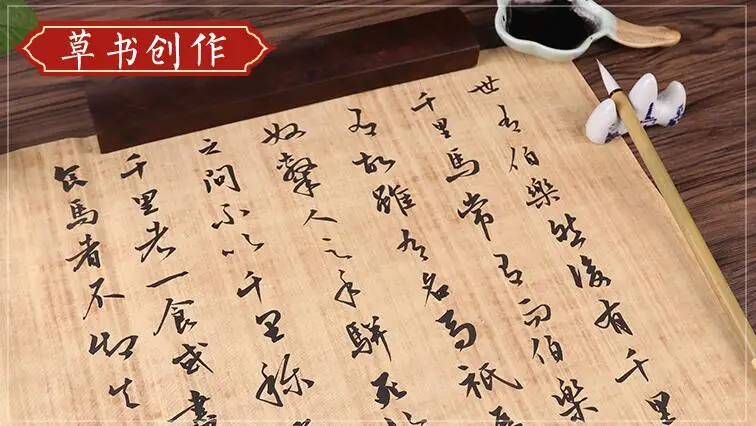 草书创作
世有伯樂然後有千里
千里馬常有而伯樂
有故雖有名馬祇辱
奴隸人之手駢死於
之問不以千里稱
千里者一食或盡
食馬者不知其